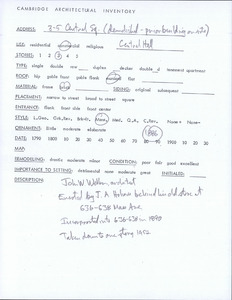 CAMBRIDGE ARCHITECTURAL INVENTORY
ADDRESS: 3-5 Central Sq. (demolished - on site)
USE: residential commercial religious Central Hall
STORIES: 1 2 3 4 5
TYPE: single double row duplex decker double d. tenement apartment
ROOF: hip gable mansard flat
MATERIAL: frame brick SIDING: original subsequent
PLACEMENT: narrow to street broad to street square
ENTRANCE: flank front side front center
STYLE: Fed. Med. Q.A. C.Rev. None
ORNAMENT: little moderate elaborate 1886
DATE: 1790 1800 10 20 30 40 50 60 70 80 90 1900 10 20 30
MAP:
REMODELING: drastic moderate minor CONDITION: poor fair good excellent
IMPORTANCE TO SETTING: detrimental none moderate great INITIALED:
DESCRIPTION: John W. architect
Erected by J. A. Holmes behind his old store at
636-638 Mass Ave
Incorporated into 636-638 in 1898
Taken down to one story 1952